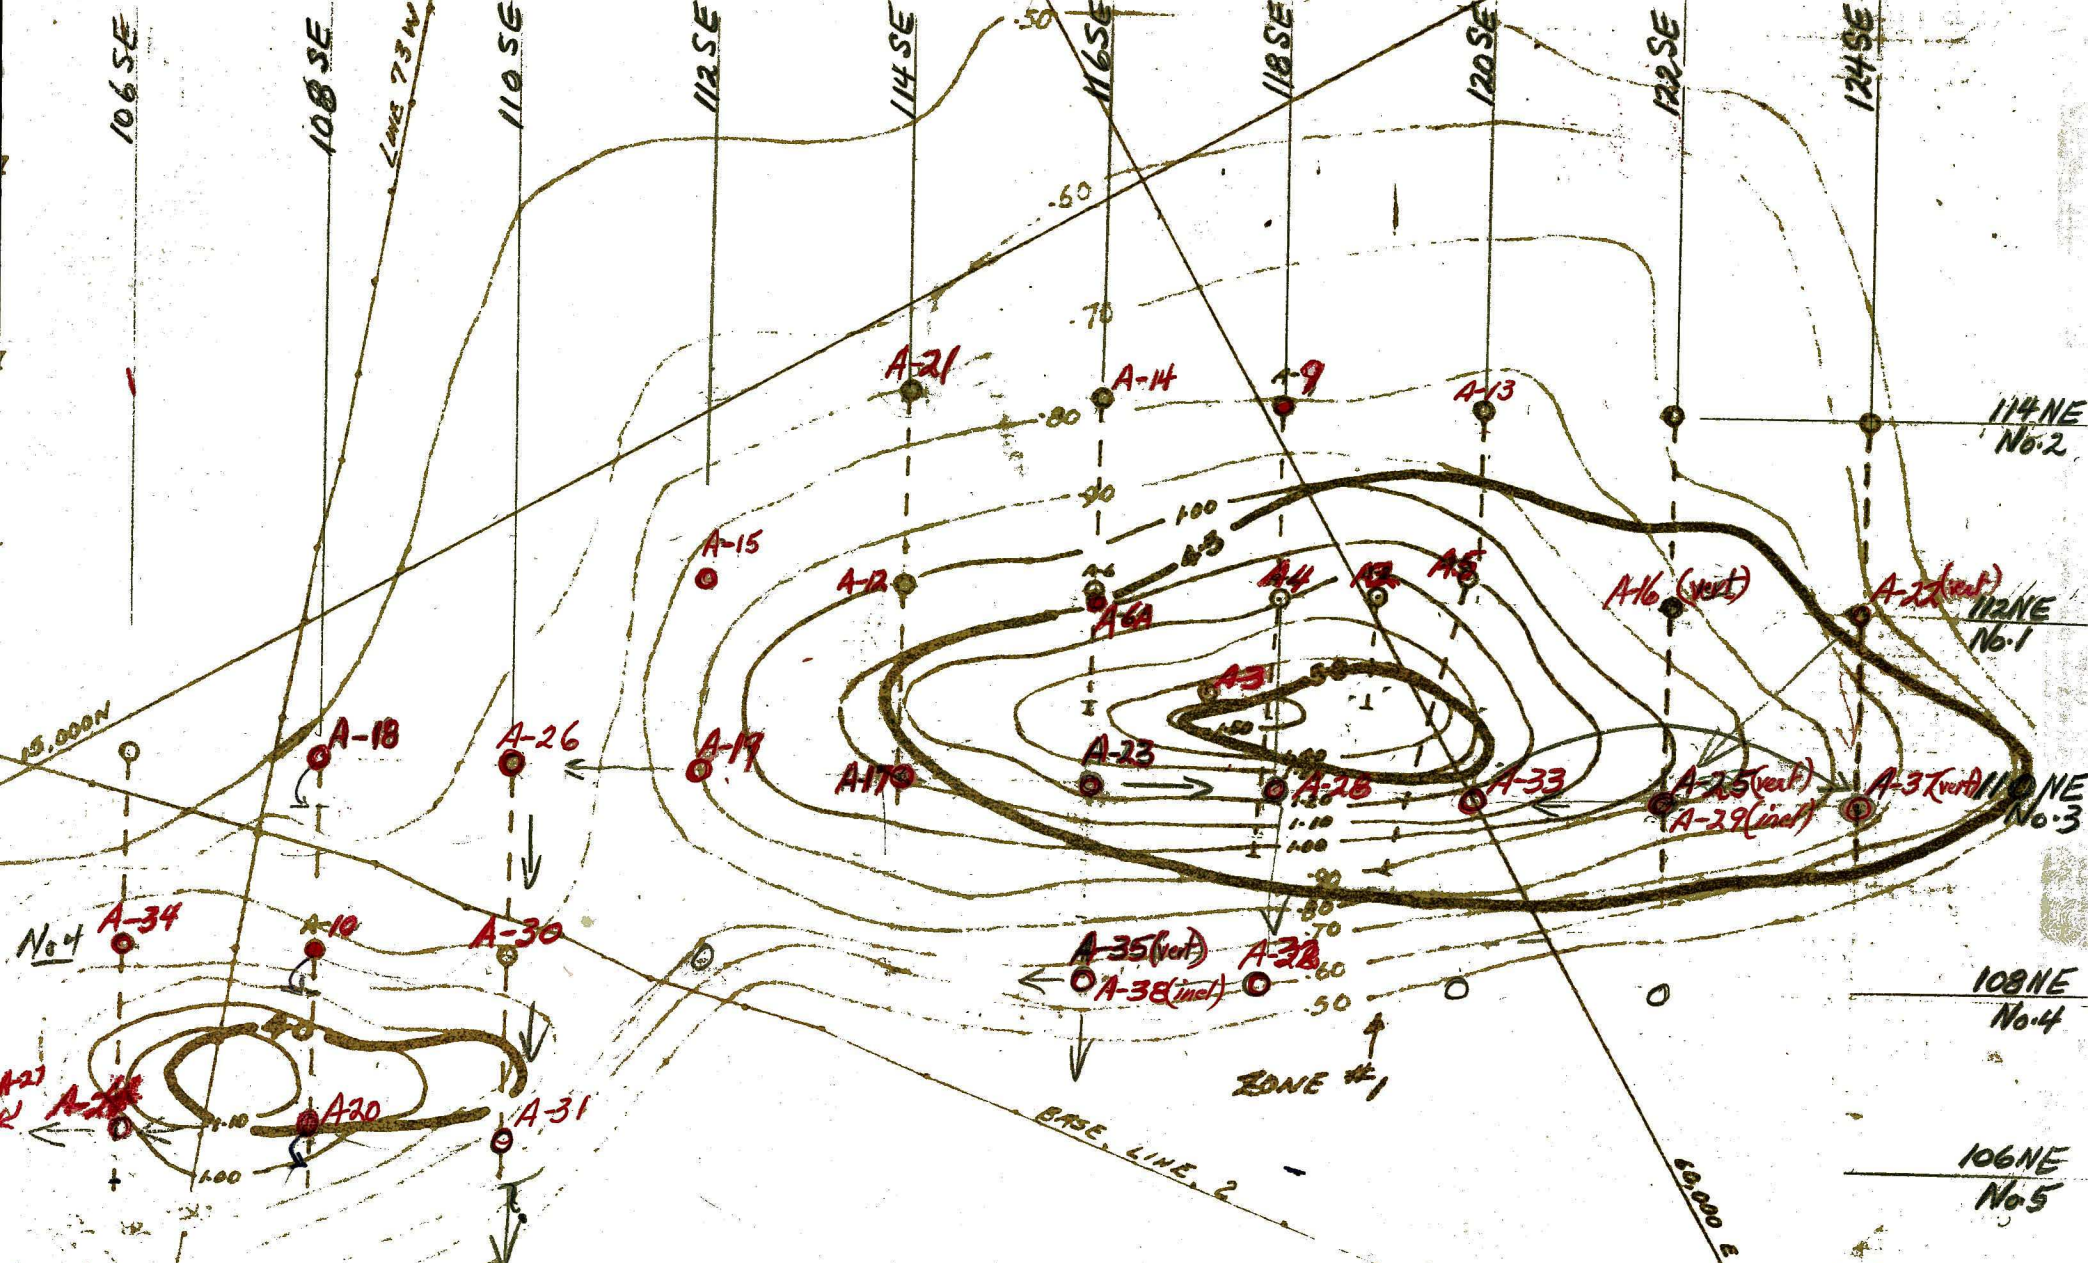 106SE
108SE
LINE 73W
110SE
112SE
114SE
.50
116SE
118SE
120SE
122SE
124SE
.60
.70
A-21
A-14
A-9
A-13
.80
114NE
No.2
.90
1.00
A-15
A-12
A-6
A-6A
A-4
A-2
A-5
A-16 (vert)
A-22 (vert)
112NE
No.1
A-3
1.50
15.000N
A-18
A-26
A-19
A-17
A-23
A-28
A-33
A-25 (vert)
A-29 (incl)
A-37 (vert)
110NE
No.3
1.20
1.10
1.00
.90
.80
.70
.60
.50
No 4
A-34
A-10
A-30
A-35 (vert)
A-38 (incl)
108NE
No.4
4.0
ZONE #1
A-27
A20
A-31
1.10
1.00
BASE LINE 2
60,000 E
106NE
No.5